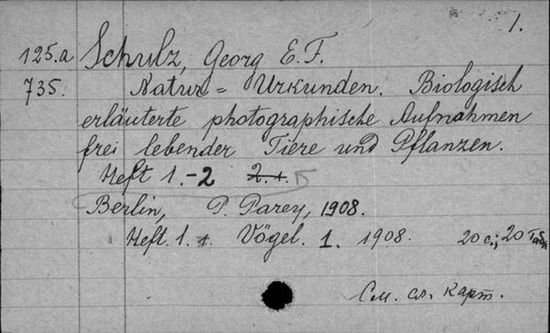 1.
125.a Schulz, Georg E.F.
735. Natur = Urkunden. Biologisch
erläuterte photographische Aufnahmen
frei lebender Tiere und Pflanzen.
Heft 1.-2
Berlin, P. Parey, 1908.
Heft. 1. Vögel. 1. 1908. 20 с.; 20 табл
См. сл. карт.